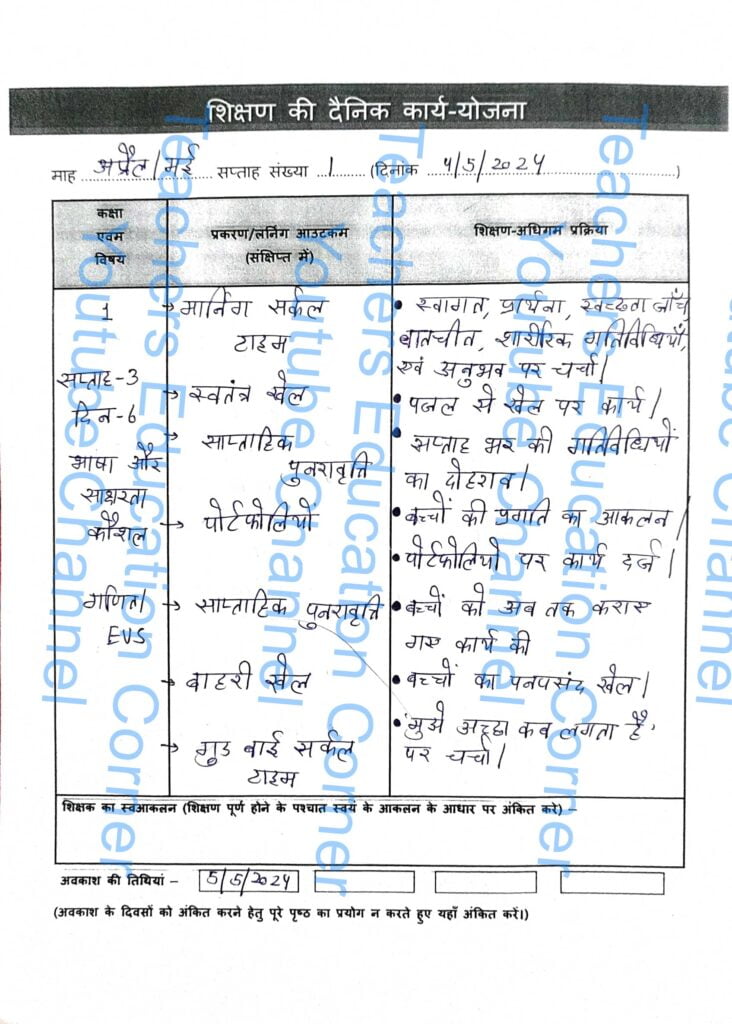 शिक्षण की दैनिक कार्य-योजना
माह अप्रैल/मई सप्ताह संख्या 1 (दिनांक 4/5/2024)
कक्षा
एवम
विषय
प्रकरण/लर्निंग आउटकम
(संक्षिप्त में)
शिक्षण-अधिगम प्रक्रिया
1
सप्ताह-3
दिन-6
भाषा और
साक्षरता
कौशल
गणित/
EVS
→ मार्निंग सर्कल
टाइम
→ स्वतंत्र खेल
→ साप्ताहिक
पुनरावृत्ति
→ पोर्टफोलियों
→ साप्ताहिक पुनरावृत्ति
→ बाहरी खेल
→ गुड बाई सर्कल
टाइम
• स्वागत, प्रार्थना, स्वच्छता जाँच
बातचीत, शारीरिक गतिविधियाँ,
एवं अनुभव पर चर्चा।
• पजल से खेल पर कार्य।
• सप्ताह भर की गतिविधियों
का दोहराव।
• बच्चों की प्रगति का आकलन।
• पोर्टफोलियो पर कार्य दर्ज।
• बच्चों को अब तक कराए
गए कार्य की
• बच्चों का पनपसंद खेल।
• 'मुझे अच्छा कब लगता है'
पर चर्चा।
शिक्षक का स्वआकलन (शिक्षण पूर्ण होने के पश्चात स्वयं के आकलन के आधार पर अंकित करे) –
अवकाश की तिथियां – 5/5/2024
(अवकाश के दिवसों को अंकित करने हेतु पूरे पृष्ठ का प्रयोग न करते हुए यहाँ अंकित करें।)
Teachers Education Corner
Youtube Channel
Teachers Education Corner
Youtube Channel
Teachers Education Corner
Youtube Channel